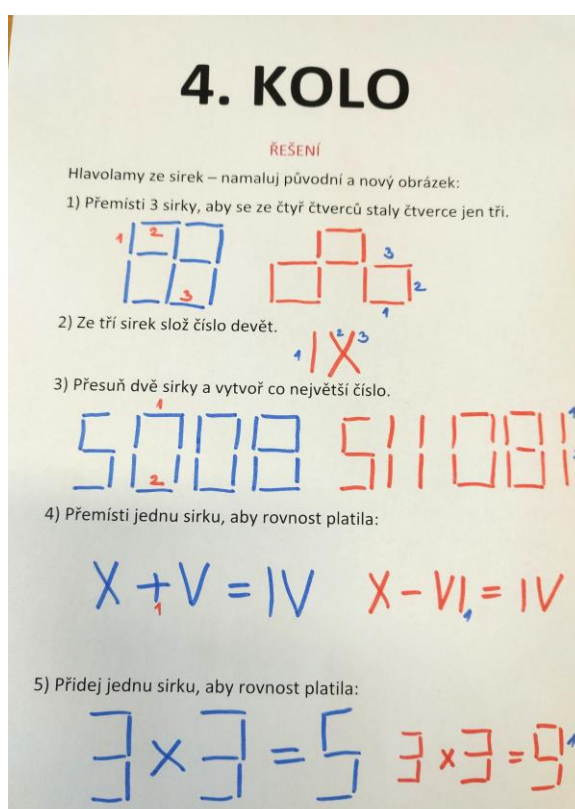 4. KOLO
ŘEŠENÍ
Hlavolamy ze sirek – namaluj původní a nový obrázek:
1) Přemísti 3 sirky, aby se ze čtyř čtverců staly čtverce jen tři.
1 2 3 3 2 1
2) Ze tří sirek slož číslo devět.
1 IX 2 3
3) Přesuň dvě sirky a vytvoř co největší číslo.
1 2 1
5008 511081
4) Přemísti jednu sirku, aby rovnost platila:
X + V = IV X - VI = IV
1 1
5) Přidej jednu sirku, aby rovnost platila:
3 x 3 = 5 3 x 3 = 9 1